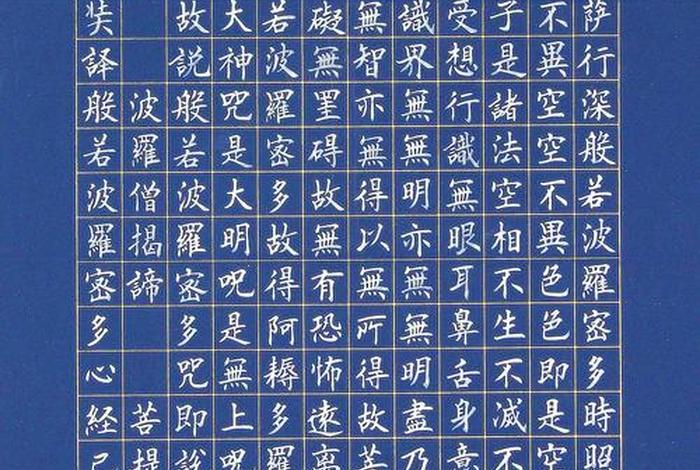 萨行深般若波羅密多時照
不異空空不異色色即是空
子是諸法空相不生不滅不
受想行識無眼耳鼻舌身意
識界無無明亦無無明盡乃
無智亦無得以無所得故菩
礙無罣碍故無有恐怖遠離
若波羅密多故得阿耨多羅
大神咒是大明呪是無上呪
故説般若波羅密多咒即説
波羅僧揭諦 菩提
奘譯般若波羅密多心経